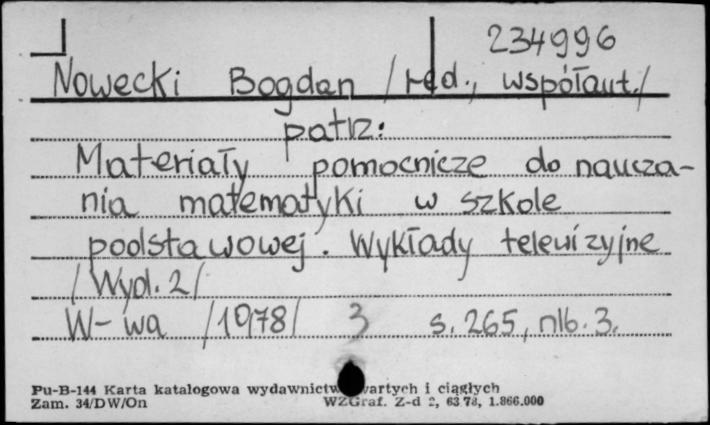 234996
Nowecki Bogdan /red., współaut./
patrz:
Materiały pomocnicze do naucza-
nia matematyki w szkole
podstawowej. Wykłady telewizyjne
/Wyd. 2/
W-wa /1978/ 3 s. 265, nlb. 3.
Pu-B-144 Karta katalogowa wydawnictw zwartych i ciągłych
Zam. 34/DW/On WZGraf. Z-d 2, 63 78, 1.866.000